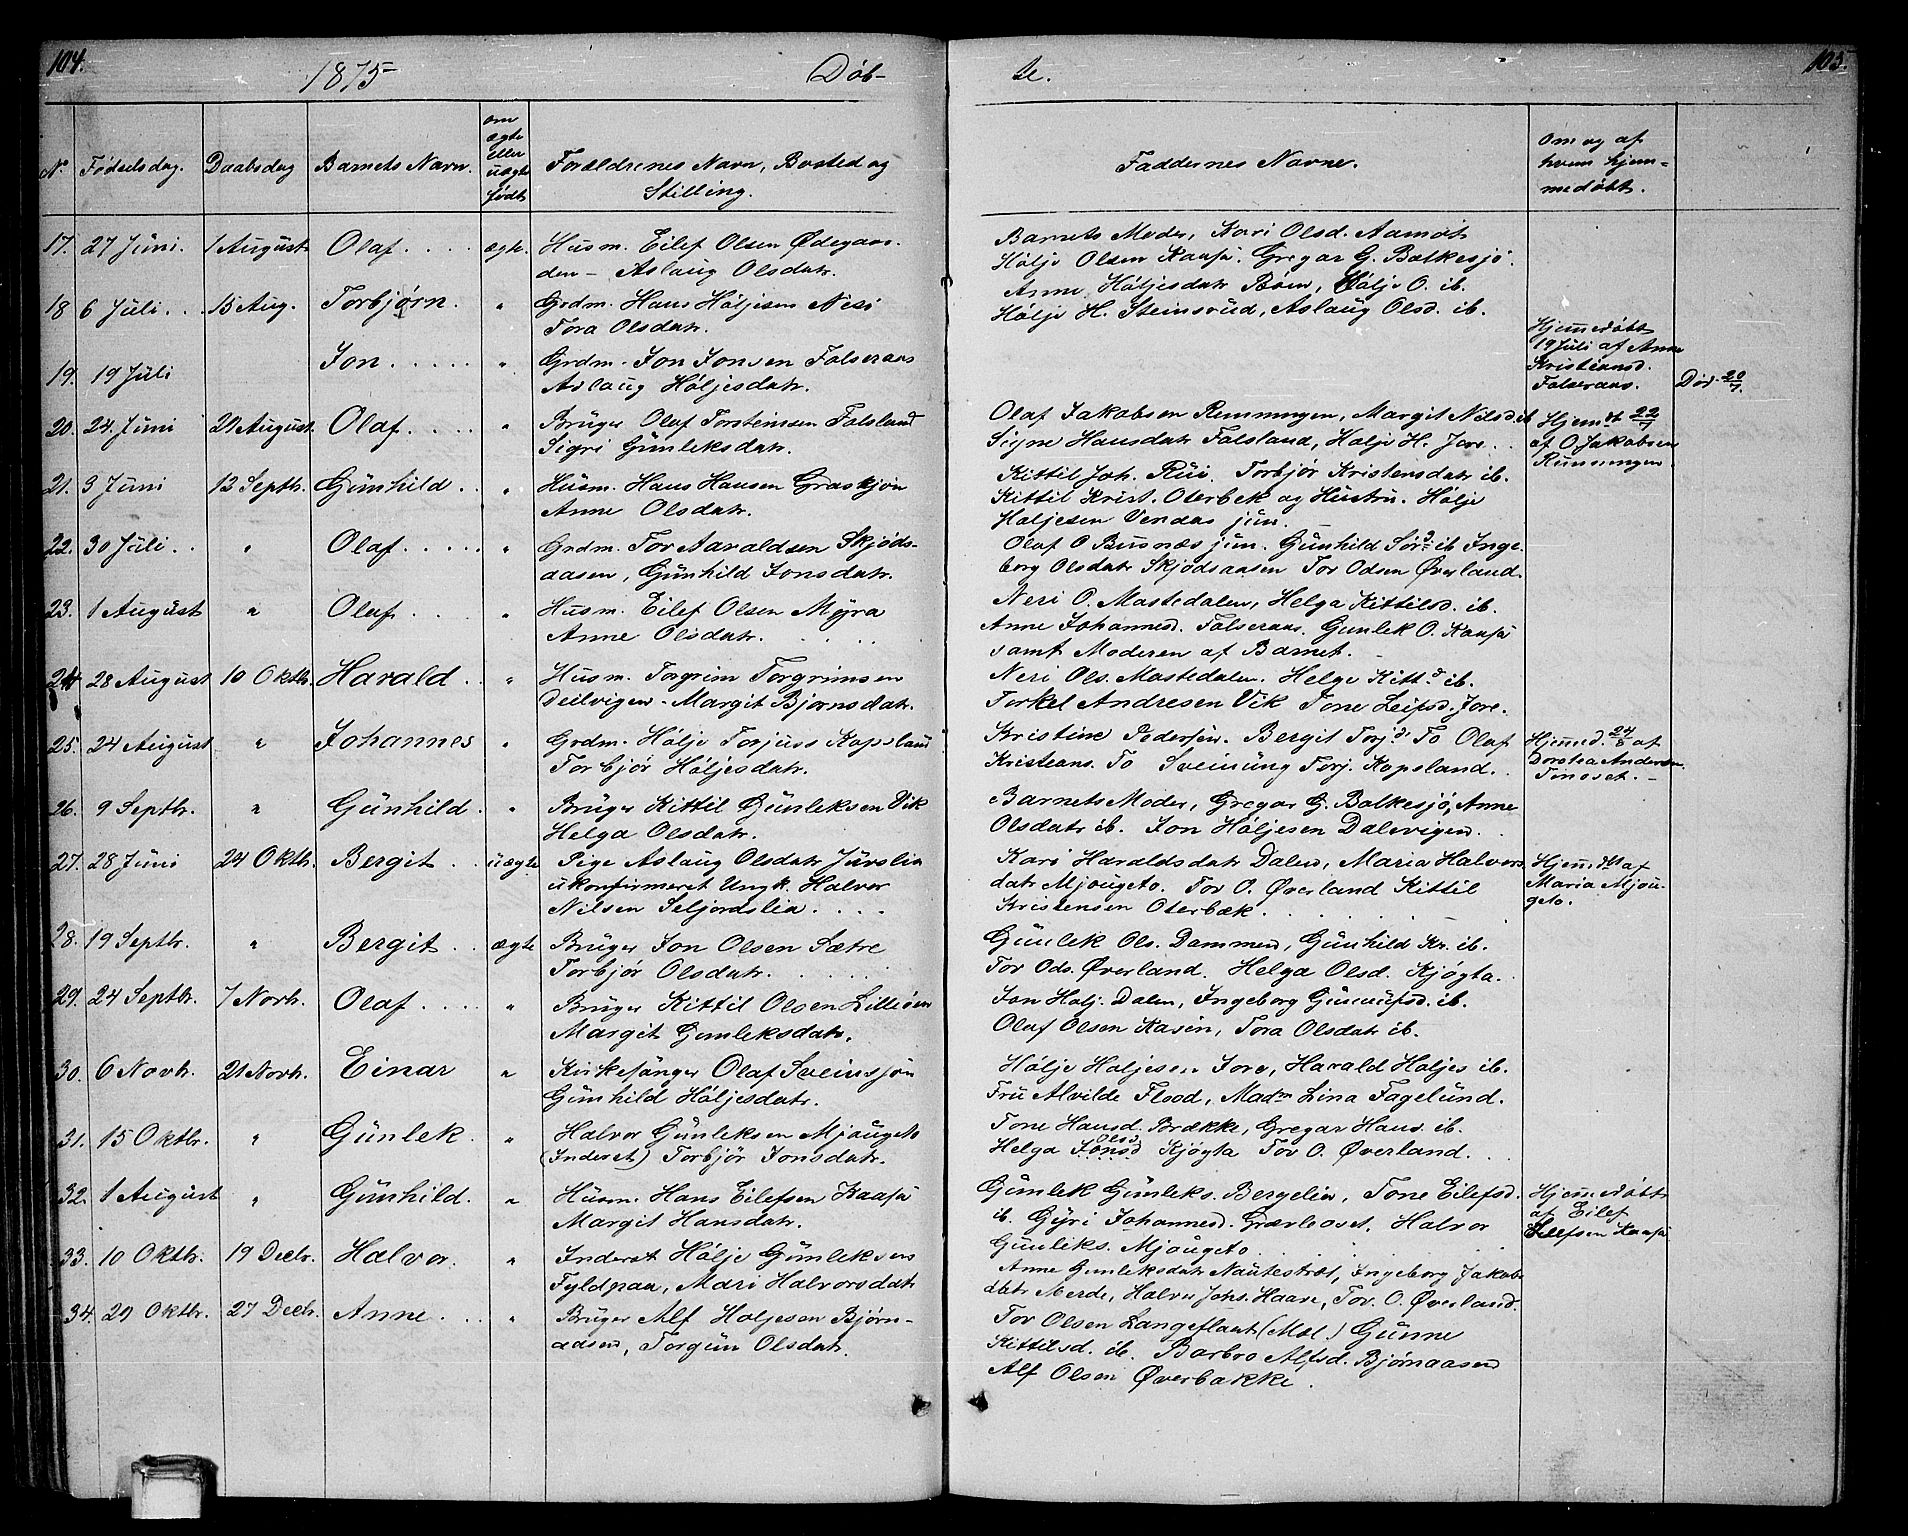 104. 1875 Døb-
te. 105.
No. Fødselsdag. Daabsdag Barnets Navn. om ægte eller uægte født Forældrenes Navn, Bosted og Stilling.
Faddernes Navne. Om og af hvem hjemmedøbt.
17. 27 Juni. 1 August Olaf . . . . ægte. Husm. Eilef Olsen Ødegaar-
den - Aslaug Olsdatr.
Barnets Moder, Kari Olsd. Aamot
Hølje Olsen Kaasa. Gregar G. Bolkesjø.
18 6 Juli . . . 15 Aug. Torbjørn. " Grdm. Hans Høljesen Nesi
Tora Olsdatr.
Anne Høljesdatr Bøen, Hølje O. ib.
Hølje H. Steinsrud, Aslaug Olsd. ib.
19. 19 Juli Jon . . . . . " Grdm. Jon Jonsen Folseraas
Aslaug Høljesdatr.
Hjemmedøbt
19 Juli af Anne
Kristiansd.
Folseraas. Død 20/7.
20. 24 Juni 29 August. Olaf . . . . " Bruger Olaf Torsteinsen Folsland
Sigri Gunleksdatr.
Olaf Jakobsen Runningen, Margit Nilsd. ib
Signe Hansdatr Folsland, Hølje H. Jore . .
Hjemdt 22/7
af O. Jakobsen
Runningen.
21. 3 Juni 12 Septbr. Gunhild . . " Husm. Hans Hansen Graskjøn
Anne Olsdatr.
Kittil Joh. Rui. Torbjør Kristensdatr ib.
Kittil Krist. Oterbek og Hustru. Hølje
Høljesen Vendaas jun.
22. 30 Juli . . " Olaf . . . . . " Grdm. Tor Aaraldsen Skjøds-
aasen, Gunhild Jonsdatr.
Olaf O Busnæs jun. Gunhild Sør.d ib Inge-
borg Olsdatr Skjødsaasen Tor Odsen Øverland.
23. 1 August " Olaf . . . . " Husm. Eilef Olsen Myra
Anne Olsdatr. . . . .
Neri O. Mastedalen, Helga Kittilsd. ib.
Anne Johannesd. Folseraas. Gunlek O. Kaasa
samt Moderen af Barnet. -
24 28 August 10 Oktbr. Harald . . " Husm. Torgrim Torgrimsen
Deilvigen - Margit Bjørnsdatr.
Neri Ols. Mastedalen. Helge Kitt.d ib.
Torkel Andresen Vik Tone Leifsd. Jore.
25. 24 August " Johannes . " Grdm. Hølje Torjuss Kopsland
Torbjør Høljesdatr.
Kristine Pedersen. Bergit Torj.d To Olaf
Kristians. To Sveinung Torj. Kopsland. .
Hjemmed. 24/8 af
Dorthea Andersen
Tinoset. -
26. 9 Septbr. " Gunhild . " Bruger Kittil Gunleksen Vik
Helga Olsdatr.
Barnets Moder, Gregar G. Bolkesjø, Anne
Olsdatr ib. Jon Høljesen Dalevigen. .
27. 28 Juni 24 Oktbr. Bergit . . uægte Pige Aslaug Olsdatr Jurslia
ukonfirmeret Ungk. Halvor
Nilsen Seljordslia . . . .
Kari Haraldsdatr Dalen, Maria Halvors
datr Mjougeto. Tor O. Øverland Kittil
Kristensen Oterbæk.
Hjemdt af
Maria Mjou-
geto.
28. 19 Septbr. " Bergit . . ægte Bruger Jon Olsen Sætre
Torbjør Olsdatr. . . . . .
Gunlek Ols. Dammen, Gunhild Kr. ib.
Tor Ods. Øverland. Helga Olsd. Kjøgta. .
29. 24 Septbr. 7 Novb. Olaf . . . . " Bruger Kittil Olsen Lilleøen
Margit Gunleksdatr.
Jon Holj. Dalen, Ingeborg Gunnufsd. ib.
Olaf Olsen Kasin, Tora Olsdatr ib.
30. 6 Novb. 21 Novb. Einar " Kirkesanger Olaf Sveinssjon
Gunhild Høljesdatr.
Hølje Høljesen Jore, Harald Holjes ib.
Fru Alvilde Flood, Madm Lina Fagelund.
31. 15 Oktbr. " Gunlek. " Halvor Gunleksen Mjougeto
(Inderst) Torbjør Jonsdatr.
Tone Hansd. Brække, Gregar Hans. ib.
Olsd
Helga Jonsd Kjøgta Tor O. Øverland. . .
32. 1 August " Gunhild. " Husm. Hans Eilefsen Kaasa
Margit Hansdatr.
Gunlek Gunleks. Bergelien, Tone Eilefsd.
ib. Gyri Johannesd. Grærleoset, Halvor
Gunleks. Mjougeto
Hjemmedøbt
af Eilef
Eilefsen Kaasa
33. 10 Oktbr. 19 Decbr. Halvor. " Inderst Hølje Gunleksen
Fyldpaa, Mari Halvorsdatr
Anne Gunleksdatr Nautestræt, Ingeborg Jakobs
datr Nerde, Halvor Johs. Haave, Tor. O. Øverland.
34. 29 Oktbr. 27 Decb. Anne . . . " Bruger Alf Holjesen Bjørn-
aasen, Torgun Olsdatr.
Tor Olsen Langeflaat (Mæl.) Gunne
Kittilsd. ib. Barbro Alfsd. Bjørnaasen
Alf Olsen Øverbakke.